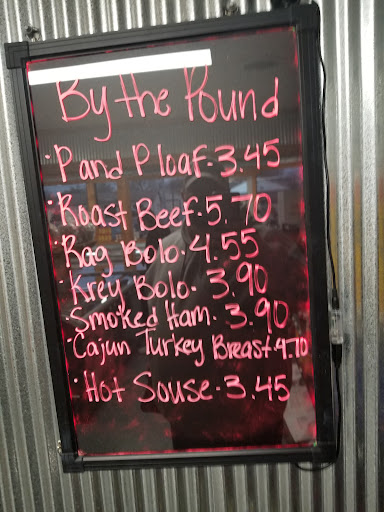 By the Pound
· P and P loaf · 3.45
· Roast Beef · 5.70
· Rag Bolo · 4.55
· Krey Bolo · 3.90
· Smoked Ham · 3.90
· Cajun Turkey Breast · 4.70
· Hot Souse · 3.45